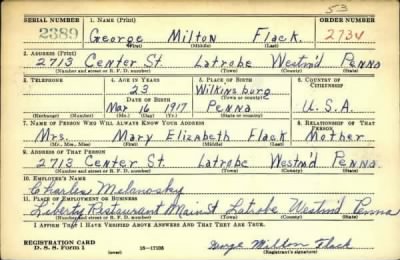 53
SERIAL NUMBER 1. NAME (Print) ORDER NUMBER
2389 George Milton Flack 2734
(First) (Middle) (Last)
2. ADDRESS (Print)
2713 Center St. Latrobe Westm'd Penna
(Number and street or R. F. D. number) (Town) (County) (State)
3. TELEPHONE 4. AGE IN YEARS 5. PLACE OF BIRTH 6. COUNTRY OF CITIZENSHIP
23 Wilkinsburg
DATE OF BIRTH (Town or county)
Mar 16 1917 Penna U.S.A.
(Exchange) (Number) (Mo.) (Day) (Yr.) (State or country)
7. NAME OF PERSON WHO WILL ALWAYS KNOW YOUR ADDRESS 8. RELATIONSHIP OF THAT PERSON
Mrs. Mary Elizabeth Flack Mother
(Mr., Mrs., Miss) (First) (Middle) (Last)
9. ADDRESS OF THAT PERSON
2713 Center St. Latrobe Westm'd Penna.
(Number and street or R. F. D. number) (Town) (County) (State)
10. EMPLOYER'S NAME
Charles Melanosky
11. PLACE OF EMPLOYMENT OR BUSINESS
Liberty Restaurant Main St Latrobe Westm'd Penna
(Number and street or R. F. D. number) (Town) (County) (State)
I AFFIRM THAT I HAVE VERIFIED ABOVE ANSWERS AND THAT THEY ARE TRUE.
REGISTRATION CARD
D. S. S. Form 1 16-17105 George Milton Flack
(Registrant's signature)